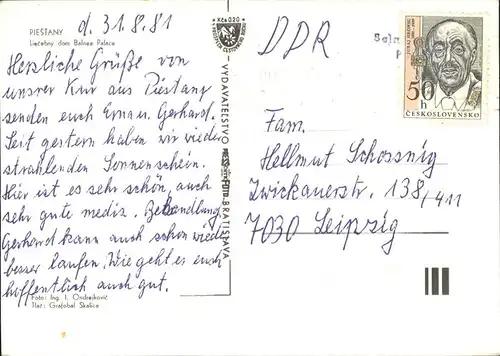 PIEŠŤANY
Liečebný dom Balnea Palace
d. 31.8.81
Herzliche Grüße von
unsrer Kur aus Piestany
senden euch Erna u. Gerhard.
Seit gestern haben wir wieder
strahlenden Sonnenschein.
Hier ist es sehr schön, auch
sehr gute mediz. Behandlung
Gerhard kann auch schon wieder
besser laufen. Wie geht es euch
hoffentlich auch gut.
Foto: Ing. I. Ondrejkovič
Tlač: Grafobal Skalica
VYDAVATEĽSTVO BRATISLAVA
DDR
50 h
ČESKOSLOVENSKO
Fam.
Hellmut Schossnig
Zwickauerstr. 138/411
7030 Leipzig